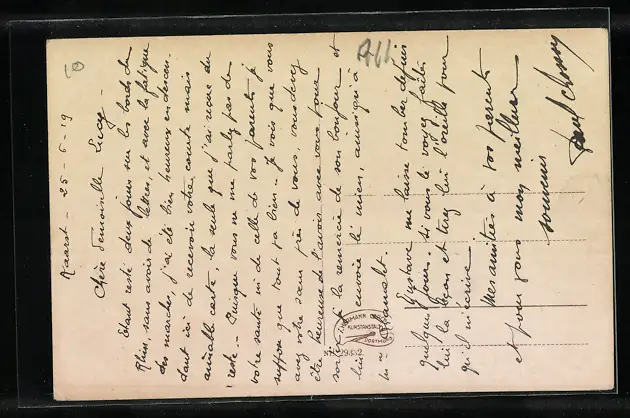 Kaarst - 25-6-19
Chère Demoiselle Lucy -
Etant resté deux jours sur les bords du
Rhin, sans avoir de lettres, et avec la fatigue
des marches, j'ai été bien heureux en descen-
dant ici de recevoir votre courte mais
aimable carte, la seule que j'ai reçue du
reste - Puisque vous ne me parlez pas de
votre santé ni de celle de vos parents je
suppose que tout va bien - Je vois que vous
avez votre près de vous, vous devez
être heureuse de l'avoir avec vous pour
Je la remercie de son bonjour et
lui envoie le mien, ainsi qu'à
Gustave me laisse tomber depuis
quelques jours. Si vous le voyez faites
lui la leçon et tirez lui l'oreille pour
qu'il m'écrive
Mes amitiés à vos parents
et pour vous mon meilleur
souvenir
911
DORTMUND
No 29352